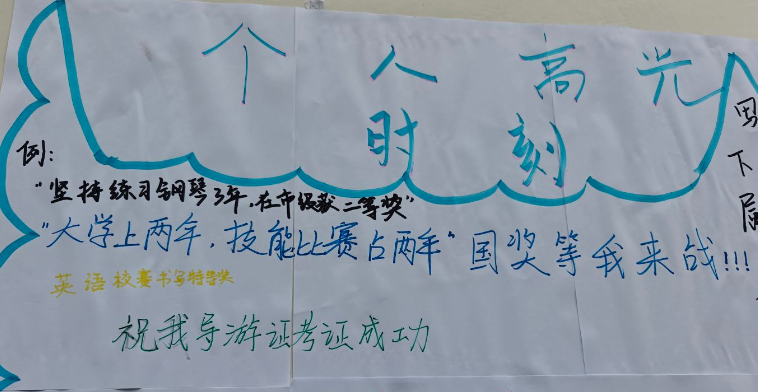 个人高光
时刻
例：
“坚持练习钢琴3年，在市级获二等奖”
“大学上两年，技能比赛占两年”国奖等我来战!!!
英语校赛书写特等奖
祝我导游证考证成功
写下属